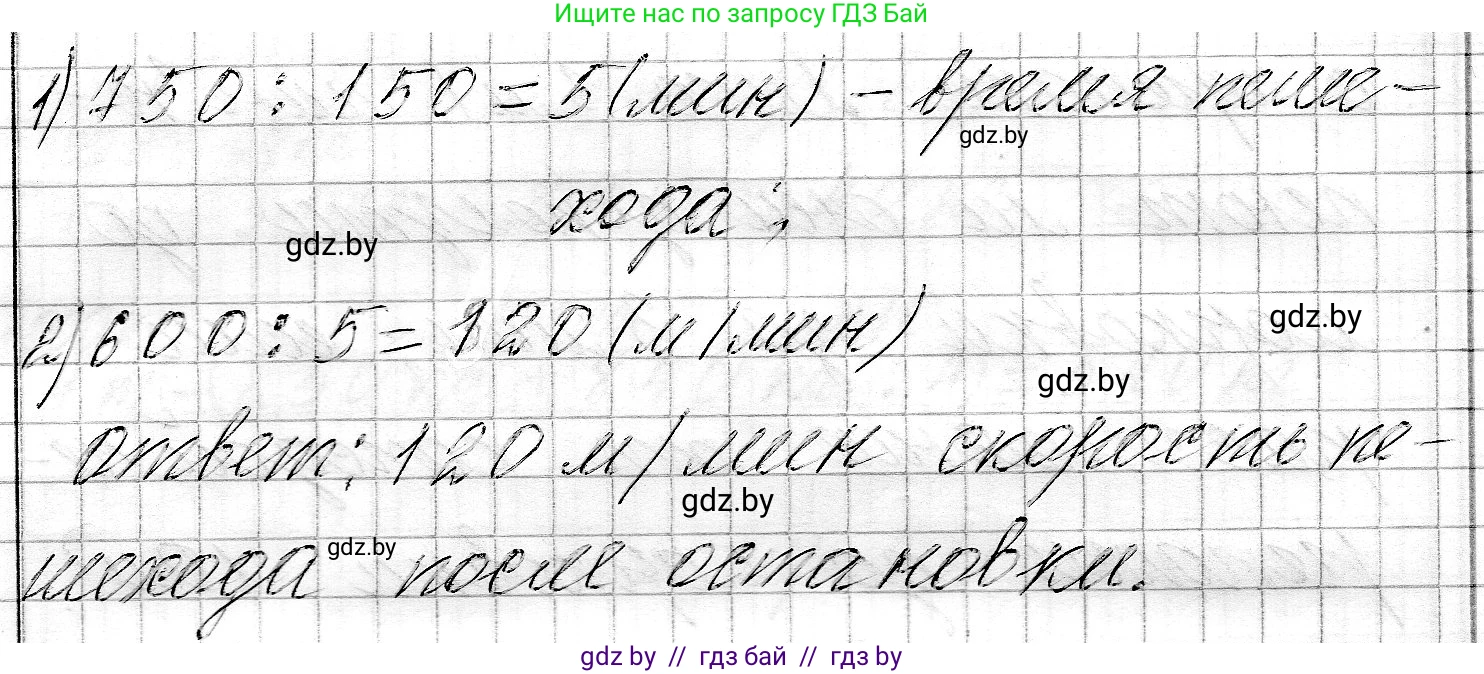 Ищите нас по запросу ГДЗ Бай
1) 750 : 150 = 5 (мин) – время пеше-
gdz.by
хода;
gdz.by
2) 600 : 5 = 120 (м/мин)
gdz.by
gdz.by
ответ: 120 м/мин скорость пе-
gdz.by
шехода после остановки.
gdz.by
gdz.by // гдз бай // гдз by